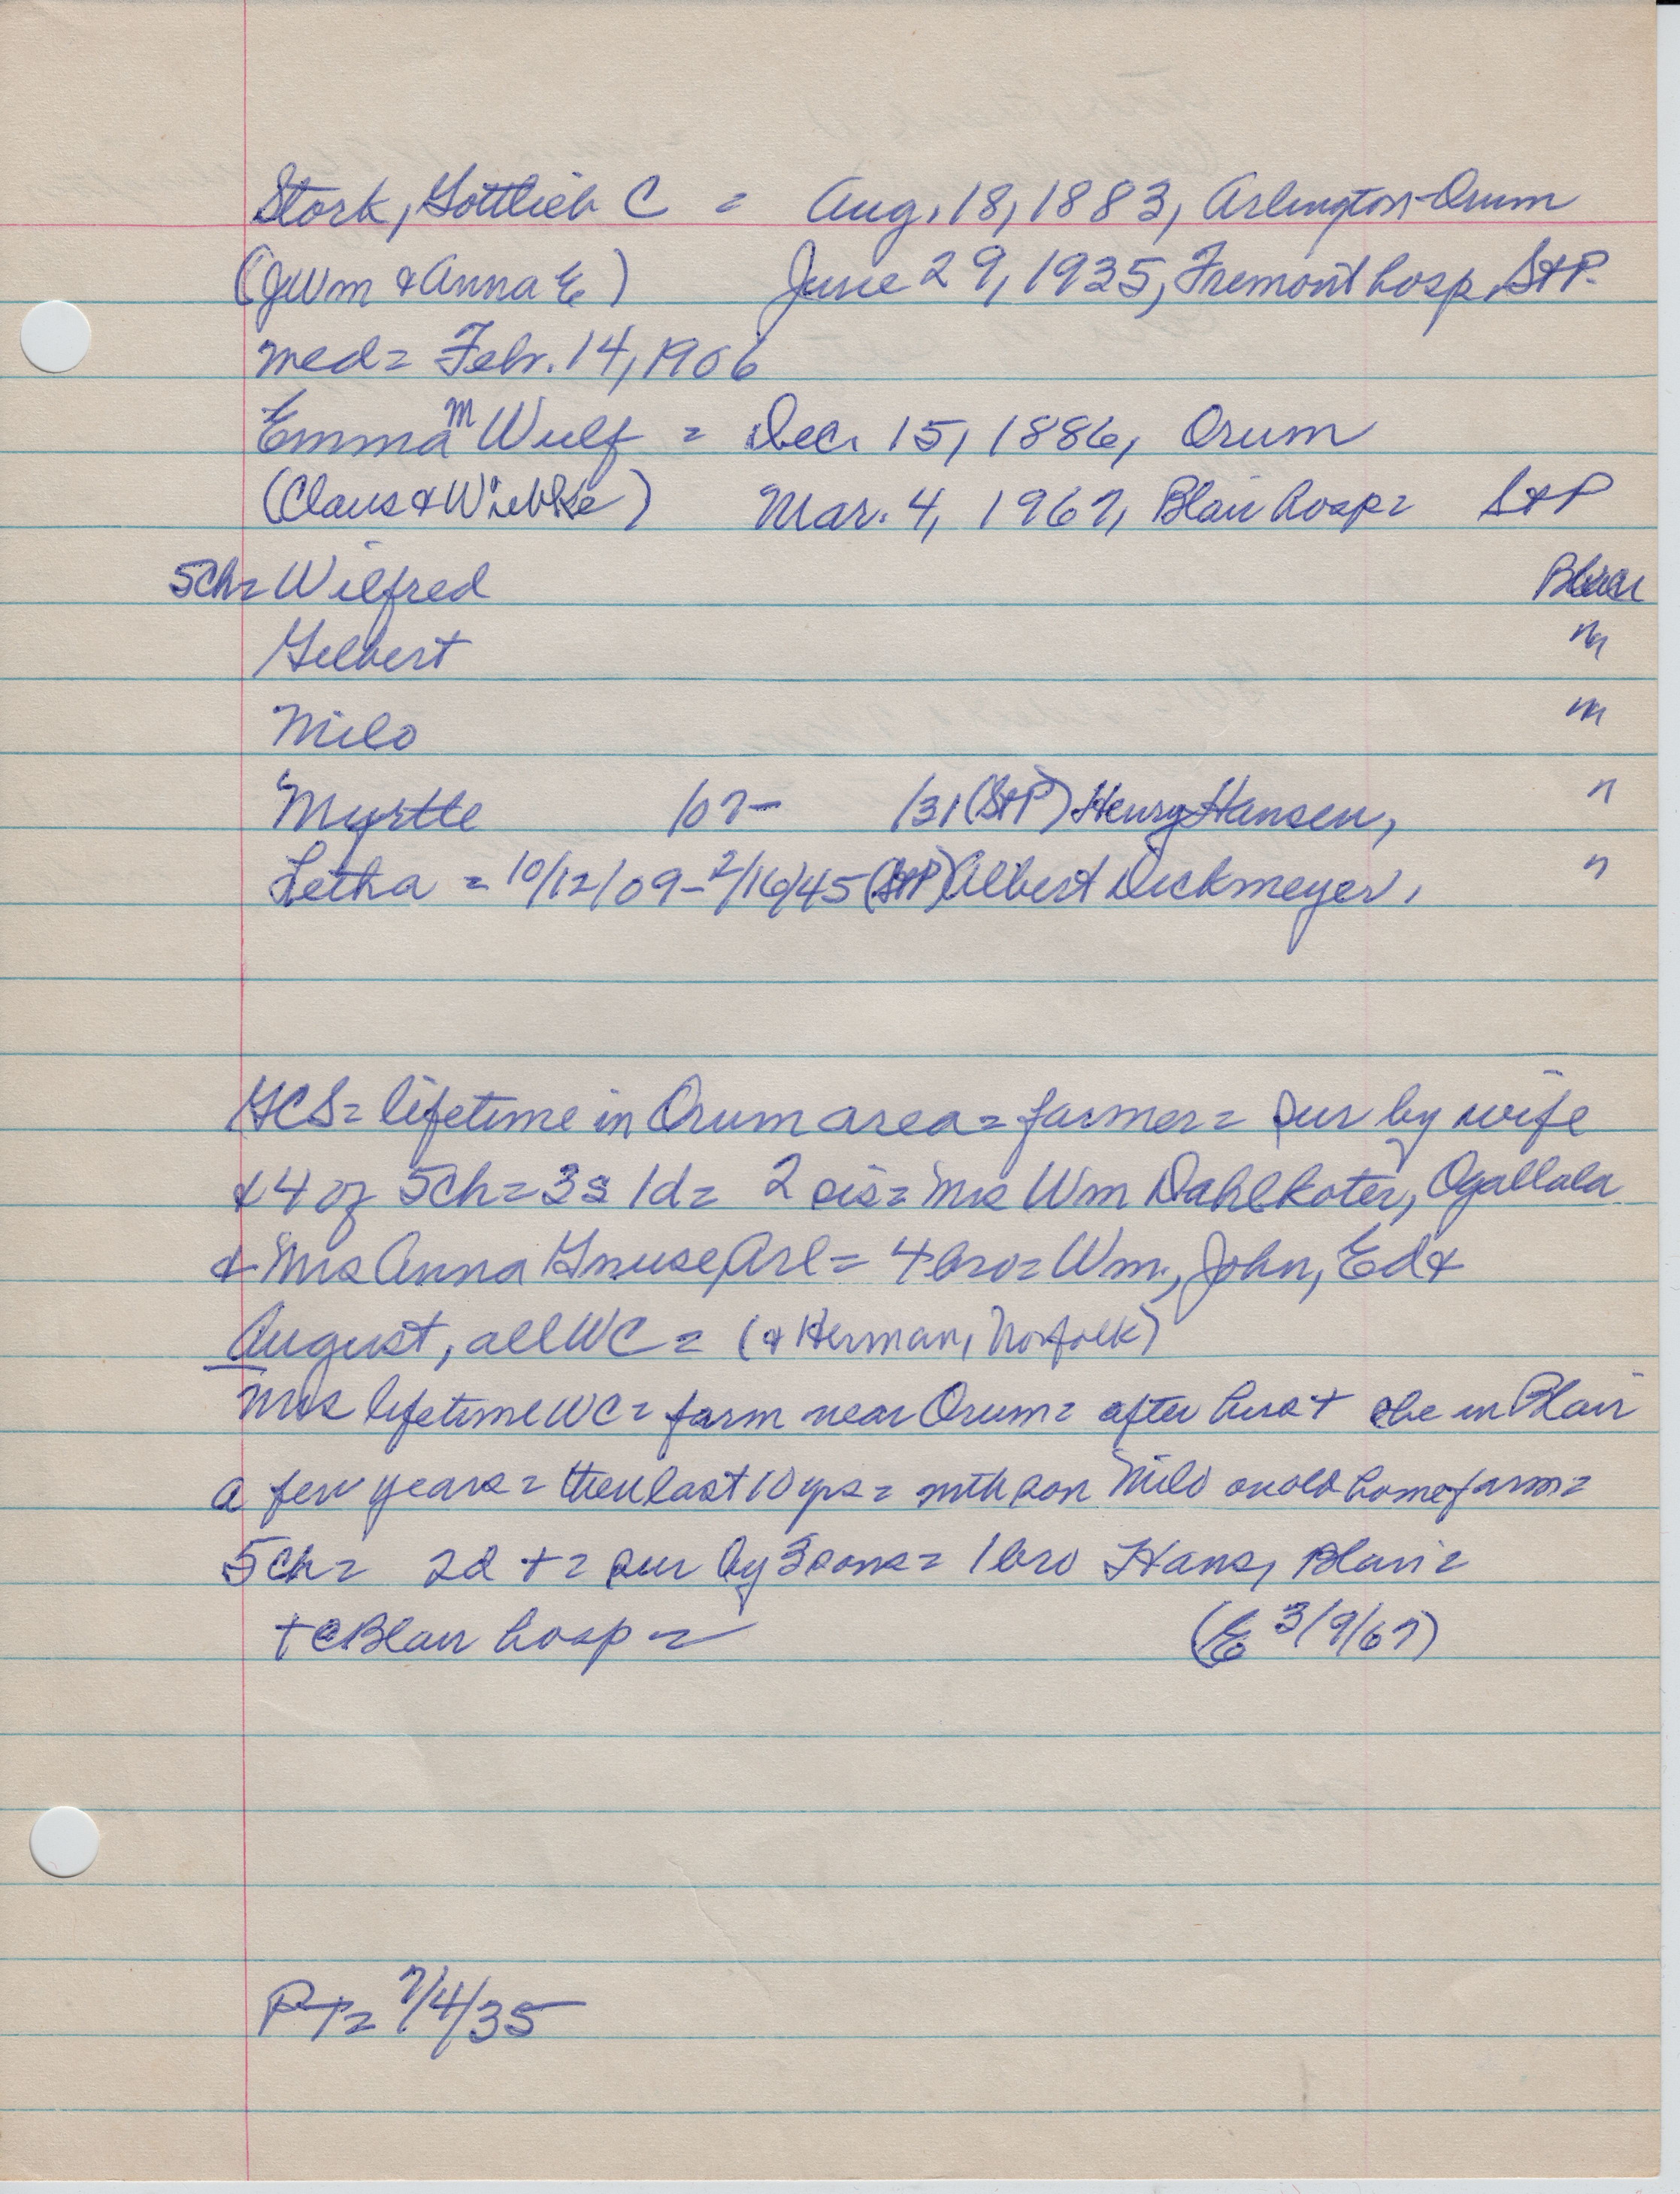 Stork, Gottlieb C = Aug. 18, 1883, Arlington-Orum
(JWm & Anna E) June 29, 1935, Fremont hosp, St P.
med = Febr. 14, 1906
Emma M Wulf = Dec. 15, 1886, Orum
(Claus & Wiebke) Mar. 4, 1967, Blair hosp = St P
5ch = Wilfred Blair
Gilbert "
Milo "
Myrtle /07- /31 (St P) Henry Hansen, "
Letha = 10/12/09-2/16/45 (St P) Albert Dickmeyer, "
GCS = lifetime in Orum area = farmer = sur by wife
& 4 of 5ch = 3s 1d = 2 sis = Mrs Wm Dahlkoter, Ogallala
& Mrs Anna Gnuse, Arl = 4 bro = Wm., John, Ed &
August, all WC = (& Herman, Norfolk)
Mrs lifetime WC = farm near Orum = after hus + she in Blair
a few years = then last 10 yrs = with son Milo on old home farm =
5ch = 2d + = sur by 3 sons = 1 bro Hans, Blair =
+ @ Blair hosp =
(E 3/9/67)
PT = 7/4/35